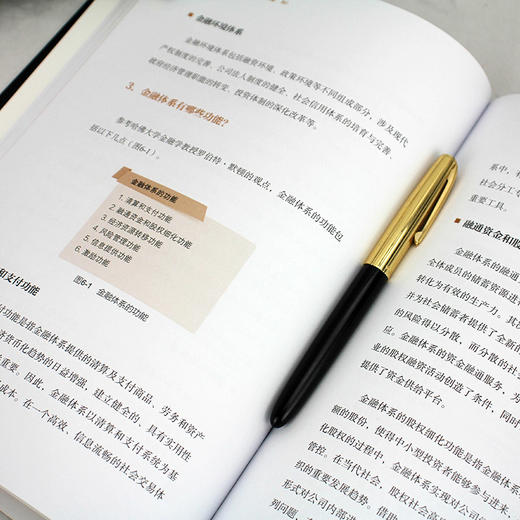 金融环境体系
金融环境体系包括融资环境、政策环境等不同组成部分，涉及现代
产权制度的完善、公司法人制度的健全、社会信用体系的培育与完善、
政府经济管理职能的转变、投资体制的深化改革等。
3. 金融体系有哪些功能?
参考哈佛大学金融学教授罗伯特·默顿的观点，金融体系的功能包
括以下几点（图6-1）。
金融体系的功能
1. 清算和支付功能
2. 融通资金和股权细化功能
3. 经济资源转移功能
4. 风险管理功能
5. 信息提供功能
6. 激励功能
图6-1 金融体系的功能
和支付功能
付功能是指金融体系提供的清算及支付商品、劳务和资产
济货币化趋势的日益增强，建立健全的、具有实用性
重要。因此，金融体系以清算和支付系统为基
成本。在一个高效、信息流畅的社会交易体
系中，
社会分工
重要工具。
融通资金和股
金融体系的融通
全体成员的储蓄资源进
转化为有效的生产力。其
并为社会储蓄者提供了全新的
的风险得以分散，而分散的社
应。金融体系的资金融通服务，为
业的股权融资活动创造了条件，同时
提供了资金供给平台。
金融体系的股权细化功能是指金融体
额的股份，使得中小型投资者能够参与进来，
化股权的过程中，金融体系实现对公司
管控。在当代社会，股权社会高
织的重要发展趋势。借
形式对公司内部进
列问题，